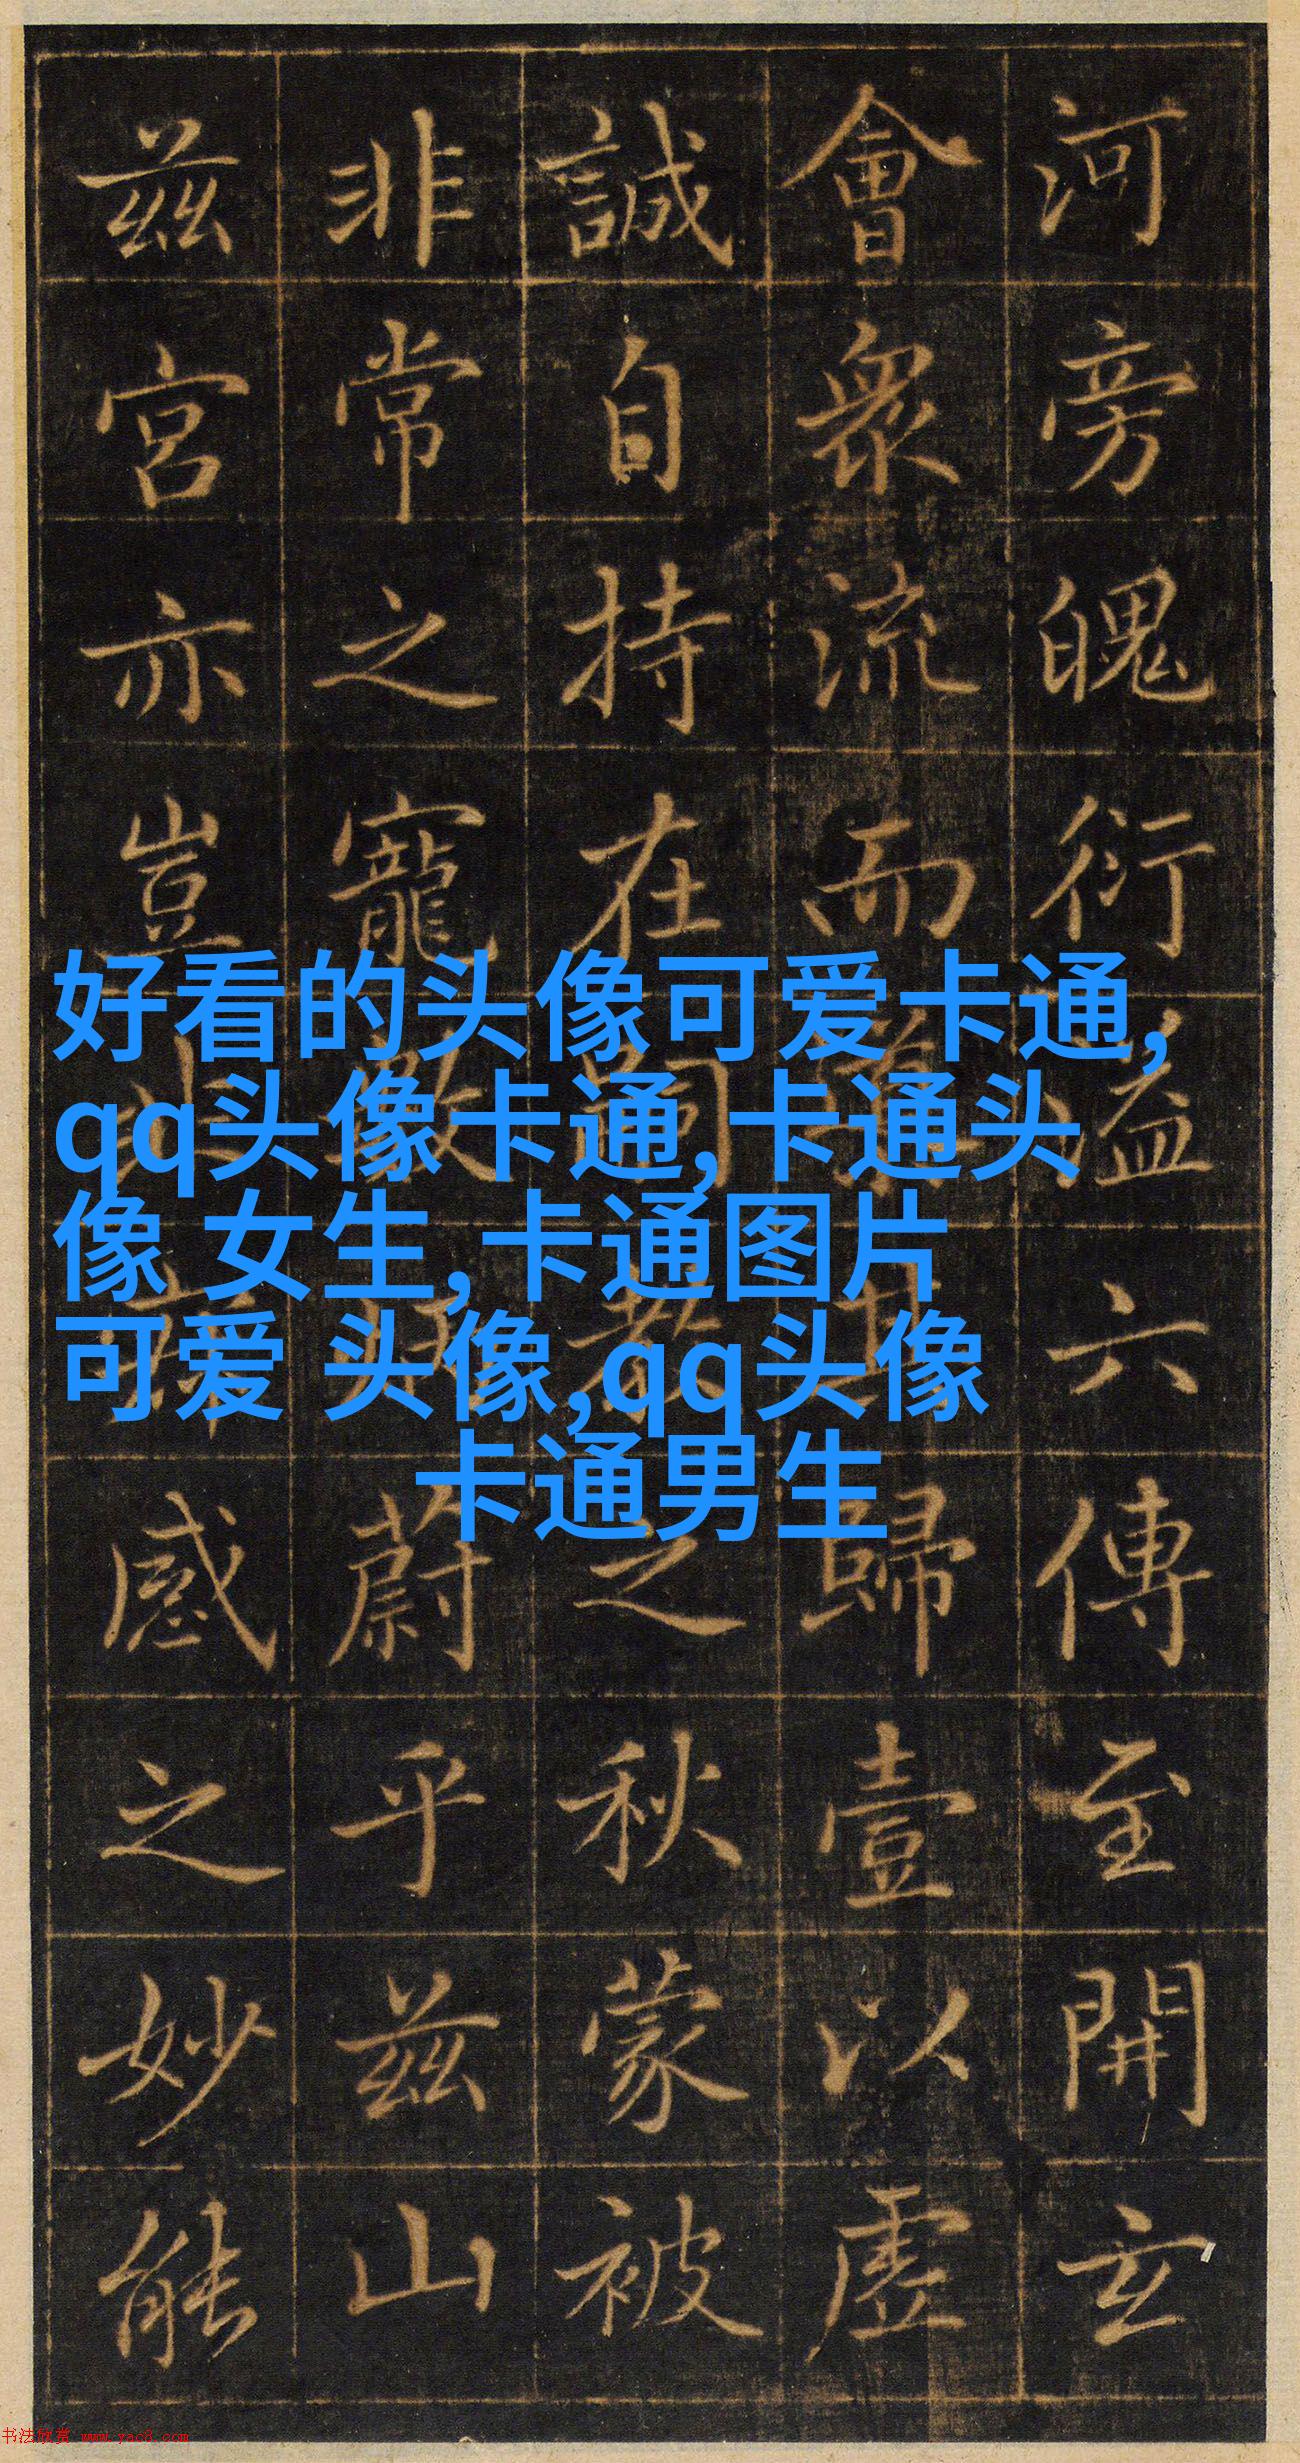 河旁魄衍溢六傳至開玄
會衆流而歸壹以虛
誠自持在嗣教之秋蒙被
非常之寵蔚乎茲山
茲宮亦豈感之妙能
好看的头像可爱卡通,
qq头像卡通,卡通头
像 女生,卡通图片
可爱 头像,qq头像
卡通男生
书法欣赏 www.yac8.com